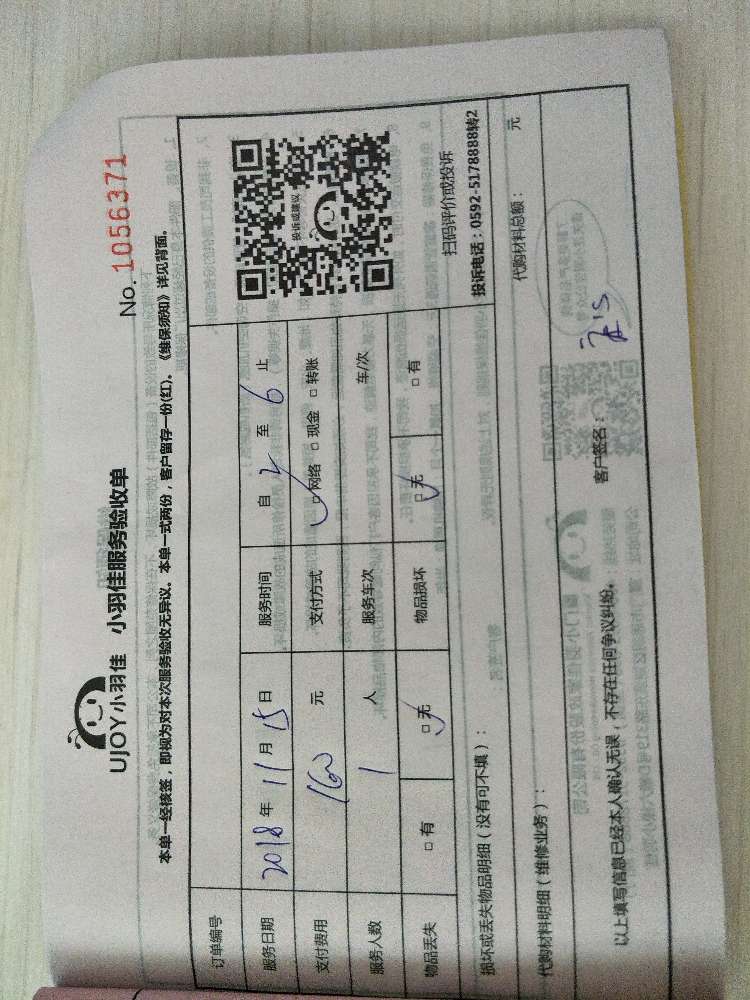 No. 1056371
UJOY小羽佳 小羽佳服务验收单
本单一经核签，即视为对本次服务验收无异议。本单一式两份，客户留存一份(红)。《维保须知》详见背面。
订单编号
服务日期 2018 年 11 月 15 日 服务时间 自 2 至 6 止
支付费用 160 元 支付方式 □网络 □现金 □转账
服务人数 1 人 服务车次 车/次
物品丢失 □有 □无 物品损坏 □无 □有
投诉或建议
扫码评价或投诉
投诉电话：0592-5178888转2
损坏或丢失物品明细（没有可不填）：
代购材料明细（维修业务）： 代购材料总额： 元
以上填写信息已经本人确认无误，不存在任何争议纠纷。 客户签名：